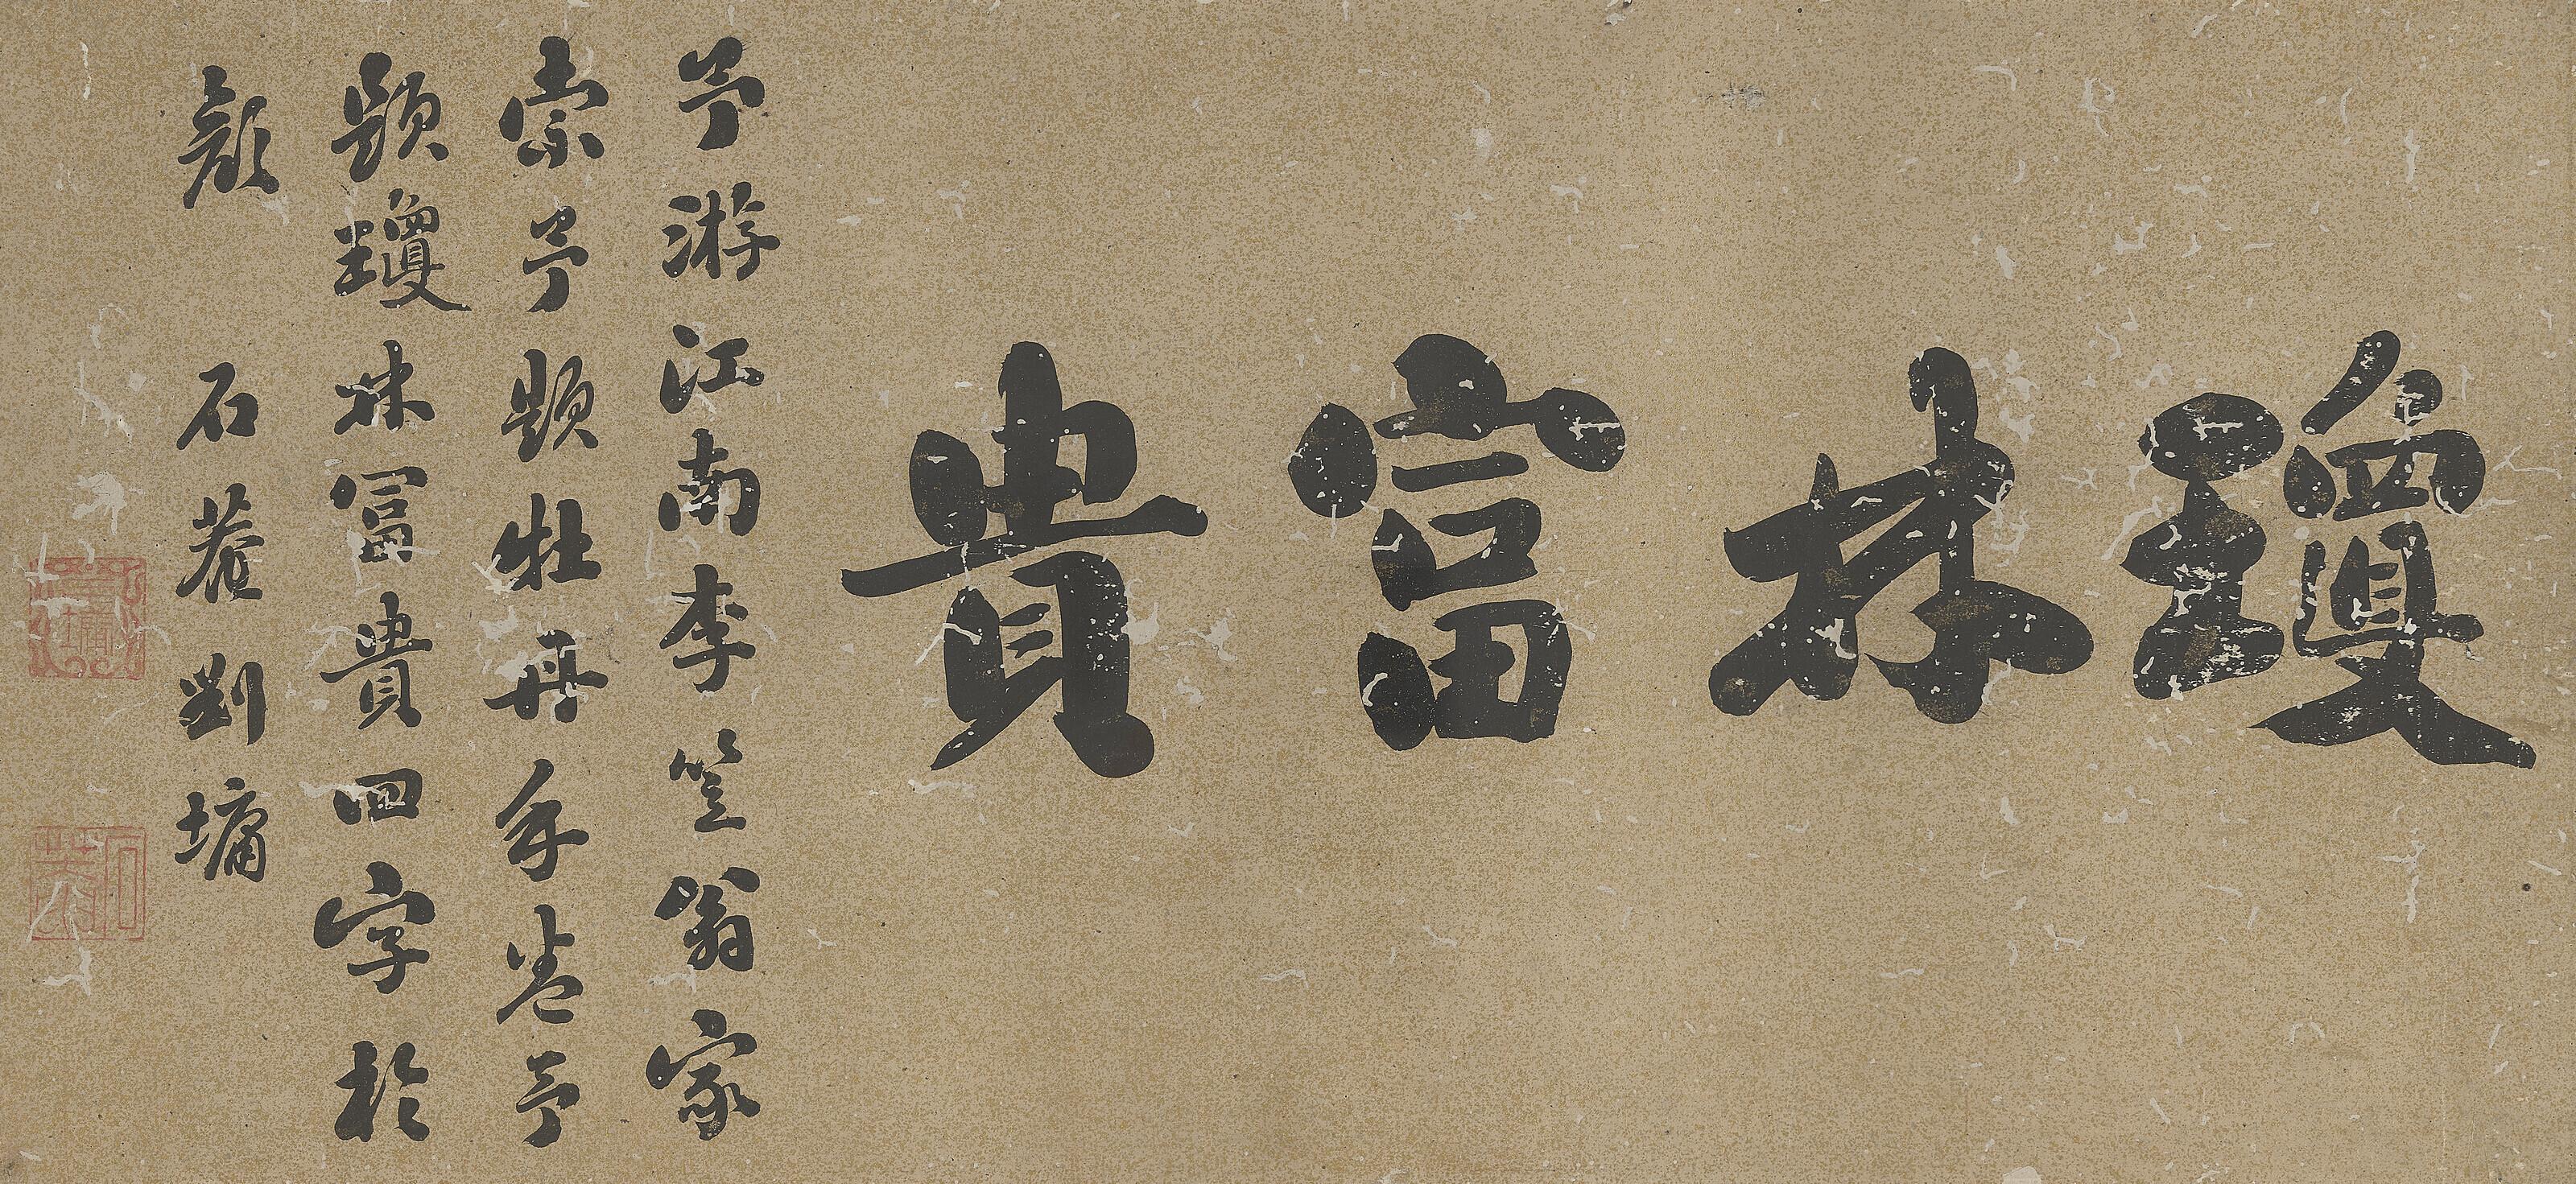 瓊林富貴
予游江南李笠翁家
索予題牡丹手卷予
題瓊林富貴四字於
顏　石菴劉墉
劉墉
石菴